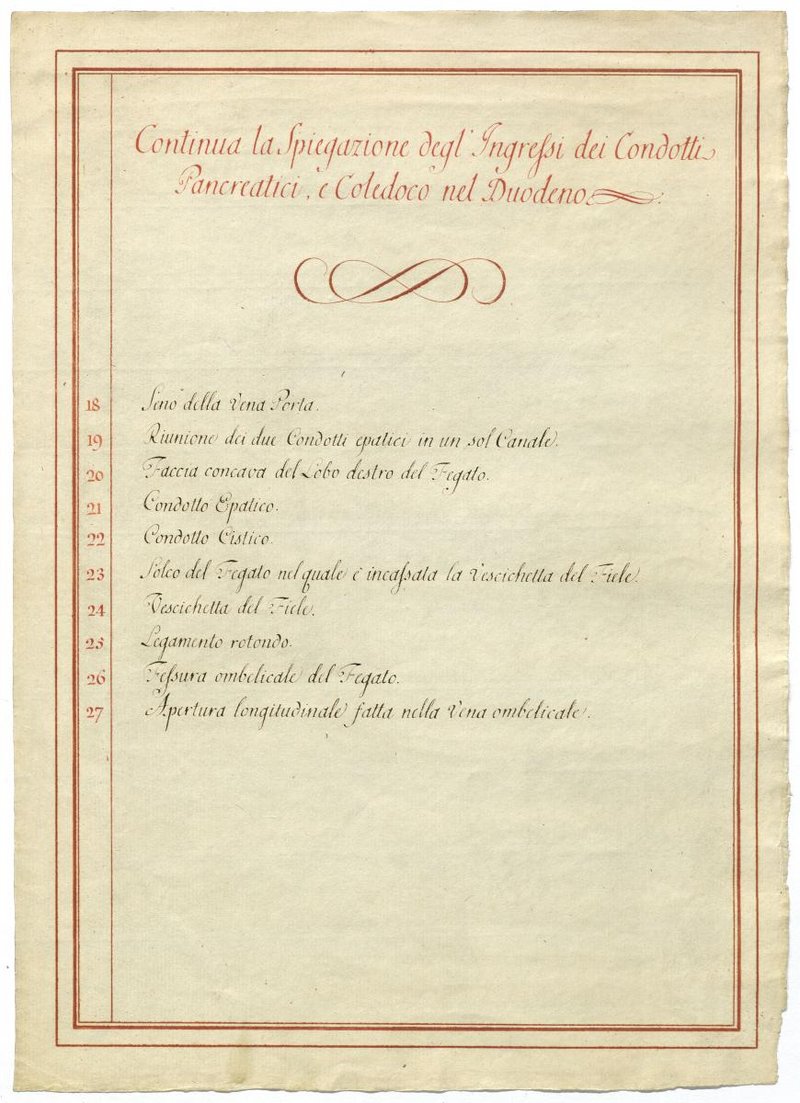 Continua la Spiegazione degl' Ingreſsi dei Condotti
Pancreatici, e Coledoco nel Duodeno.
18 Seno della Vena Porta.
19 Riunione dei due Condotti epatici in un sol Canale.
20 Faccia concava del Lobo destro del Fegato.
21 Condotto Epatico.
22 Condotto Cistico.
23 Solco del Fegato nel quale è incaſsata la Vescichetta del Fiele.
24 Vescichetta del Fiele.
25 Legamento rotondo.
26 Feſsura ombelicale del Fegato.
27 Apertura longitudinale fatta nella Vena ombelicale.